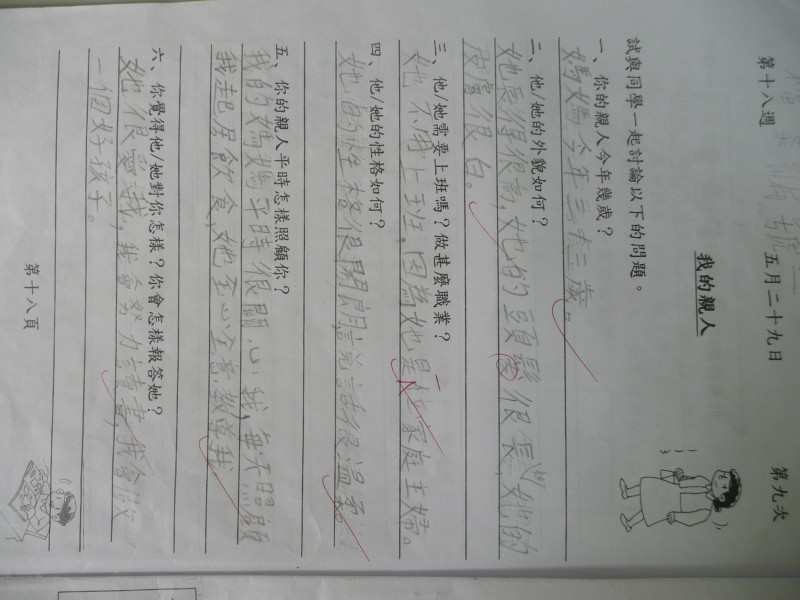 第十八週 五月二十九日 第九次
我的親人
試與同學一起討論以下的問題。
一、你的親人今年幾歲？
媽媽今年三十三歲。
二、他/她的外貌如何？
她長得很高，她的頭髮很長，她的
皮膚很白。
三、他/她需要上班嗎？做甚麼職業？
她不用上班，因為她是 家庭主婦。
四、他/她的性格如何？
她的性格很開朗，說話很溫柔。
五、你的親人平時怎樣照顧你？
我的媽媽平時很關心我，每天照顧
我起居飲食，她全心全意教導我
六、你覺得他/她對你怎樣？你會怎樣報答她？
她很愛我，我會努力讀書，我會做
一個好孩子。
第十八頁